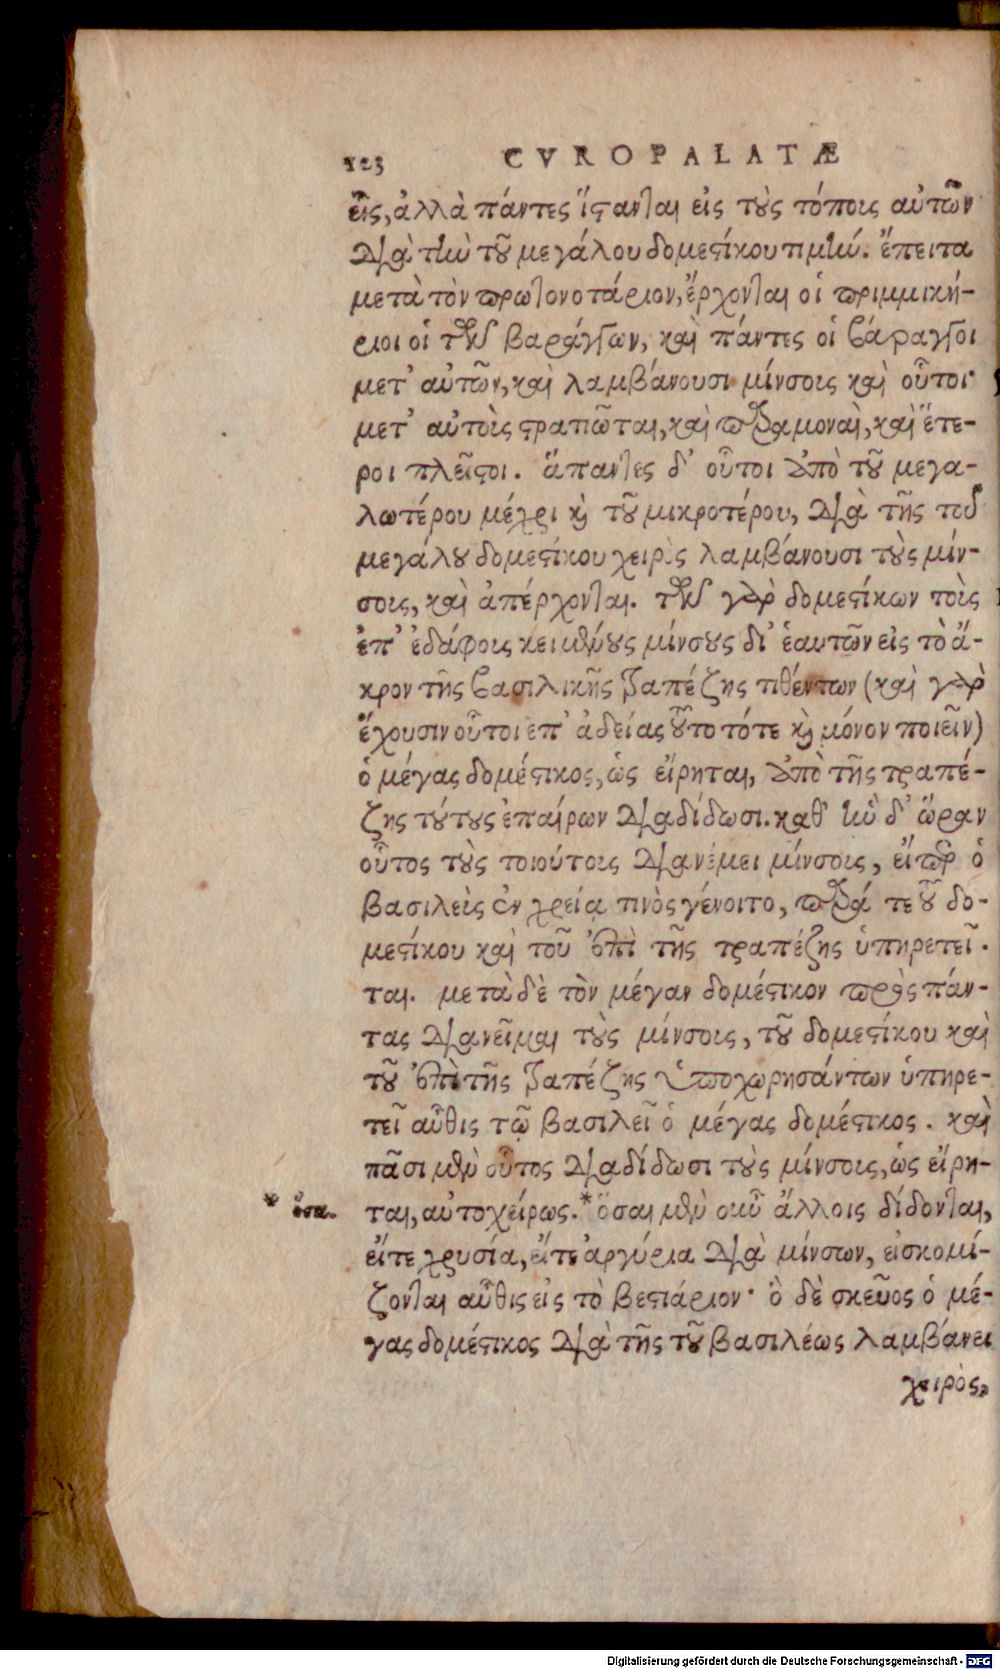 123 CVROPALATÆ
εῖς, ἀλλὰ πάντες ἵστανται εἰς τοὺς τόπους αὐτῶν
διὰ τὴν τοῦ μεγάλου δομεστίκου τιμήν. ἔπειτα
μετὰ τὸν πρωτονοτάριον, ἔρχονται οἱ πριμμική-
ριοι οἱ τῶν βαράγγων, καὶ πάντες οἱ βάραγγοι
μετ' αὐτῶν, καὶ λαμβάνουσι μίνσους καὶ οὗτοι·
μετ' αὐτοὺς στρατιῶται, καὶ παραμοναὶ, καὶ ἕτε-
ροι πλεῖστοι. ἅπαντες δ' οὗτοι ἀπὸ τοῦ μεγα-
λωτέρου μέχρι καὶ τοῦ μικροτέρου, διὰ τῆς τοῦ
μεγάλου δομεστίκου χειρὸς λαμβάνουσι τοὺς μίν-
σους, καὶ ἀπέρχονται. τῶν γὰρ δομεστίκων τοὺς
ἐπ' ἐδάφους κειμένους μίνσους δι' ἑαυτῶν εἰς τὸ ἄ-
κρον τῆς βασιλικῆς τραπέζης τιθέντων (καὶ γὰρ
ἔχουσιν οὗτοι ἐπ' ἀδείας τοῦτο τότε καὶ μόνον ποιεῖν)
ὁ μέγας δομέστικος, ὡς εἴρηται, ἀπὸ τῆς τραπέ-
ζης τούτους ἐπαίρων διαδίδωσι. καθ' ἣν δ' ὥραν
οὗτος τοὺς τοιούτους διανέμει μίνσους, εἴπερ ὁ
βασιλεὺς ἐν χρείᾳ τινὸς γένοιτο, παρά τε τοῦ δο-
μεστίκου καὶ τοῦ ἐπὶ τῆς τραπέζης ὑπηρετεῖ-
ται. μετὰ δὲ τὸν μέγαν δομέστικον πρὸς πάν-
τας διανεῖμαι τοὺς μίνσους, τοῦ δομεστίκου καὶ
τοῦ ἐπὶ τῆς τραπέζης ὑποχωρησάντων ὑπηρε-
τεῖ αὖθις τῷ βασιλεῖ ὁ μέγας δομέστικος. καὶ
πᾶσι μὲν οὗτος διαδίδωσι τοὺς μίνσους, ὡς εἴρη-
* ὅσα. ται, αὐτοχείρως.* ὅσαι μὲν οὖν ἄλλοις δίδονται,
εἴτε χρυσία, εἴτε ἀργύρια διὰ μίνσων, εἰσκομί-
ζονται αὖθις εἰς τὸ βεστιάριον· ὃ δὲ σκεῦος ὁ μέ-
γας δομέστικος διὰ τῆς τοῦ βασιλέως λαμβάνει
χειρὸς,
Digitalisierung gefördert durch die Deutsche Forschungsgemeinschaft - DFG